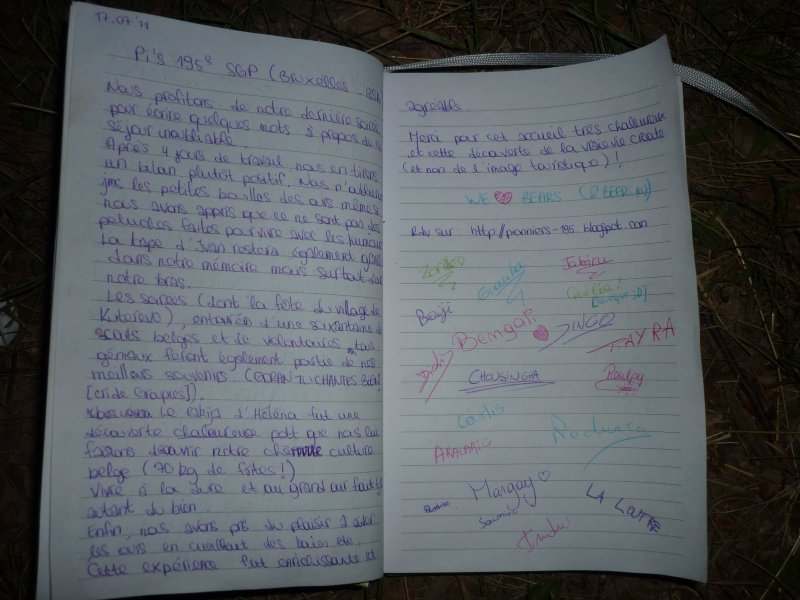 17.07.'11
Pi's 195e SGP (Bruxelles -
Nous profitons de notre dernière soirée
pour écrire quelques mots à propos de
séjour inoubliable.
Après 4 jours de travail nous en tirons
un bilan plutôt positif. Nous n'oublierons
jms les petites bouilles des ours même si
nous avons appris que ce ne sont pas des
peluches faites pour vivre avec les humains
La tape d'Ivan restera également grav
dans notre mémoire mais surtout dans
notre bras.
Les soirées (dont la fête du village de
Kuterevo), entourées d'une soixantaine de
scouts belges et de volontaires tous
géniaux feront également partie de nos
meilleurs souvenirs. (GORAN TU CHANTES BIEN!
Le rakija d'Héléna fut une
découverte chaleureuse pdt que nous lui
faisons découvrir notre culture
belge (70 kg de frites!)
Vivre à la dure et au grand air fait
autant du bien.
Enfin, nous avons pris du plaisir à aider
les ours en cueillant des baies etc.
Cette expérience fut enrichissante et
agréable.
Merci pour cet accueil très chaleureux
et cette découverte de la vraie vie croate
(et non de l'image touristique)!
WE ❤ BEARS (& BEER ;p))
Rdv sur: http://pionniers-195.blogspot.com
Jabiru
Bauji
Bemgari
JINGO
TAYRA
CHOUSINGHA
Poulpy
Courlis
ARACARI
Redunca
Margay
LA LOUTRE
Saumi
Indu